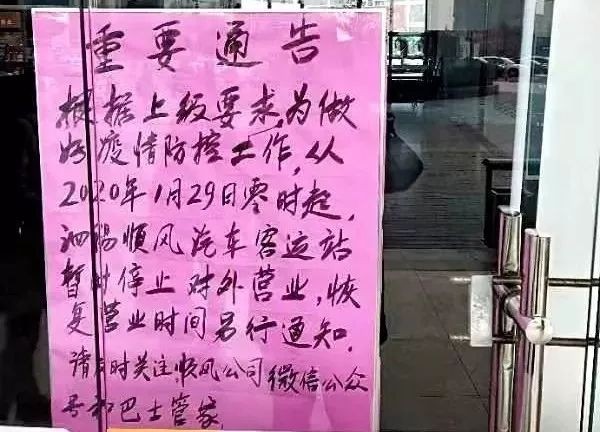 重要通告
根据上级要求为做
好疫情防控工作,从
2020年1月29日零时起,
泗阳顺风汽车客运站
暂时停止对外营业,恢
复营业时间另行通知.
请及时关注顺风公司微信公众
号和巴士管家